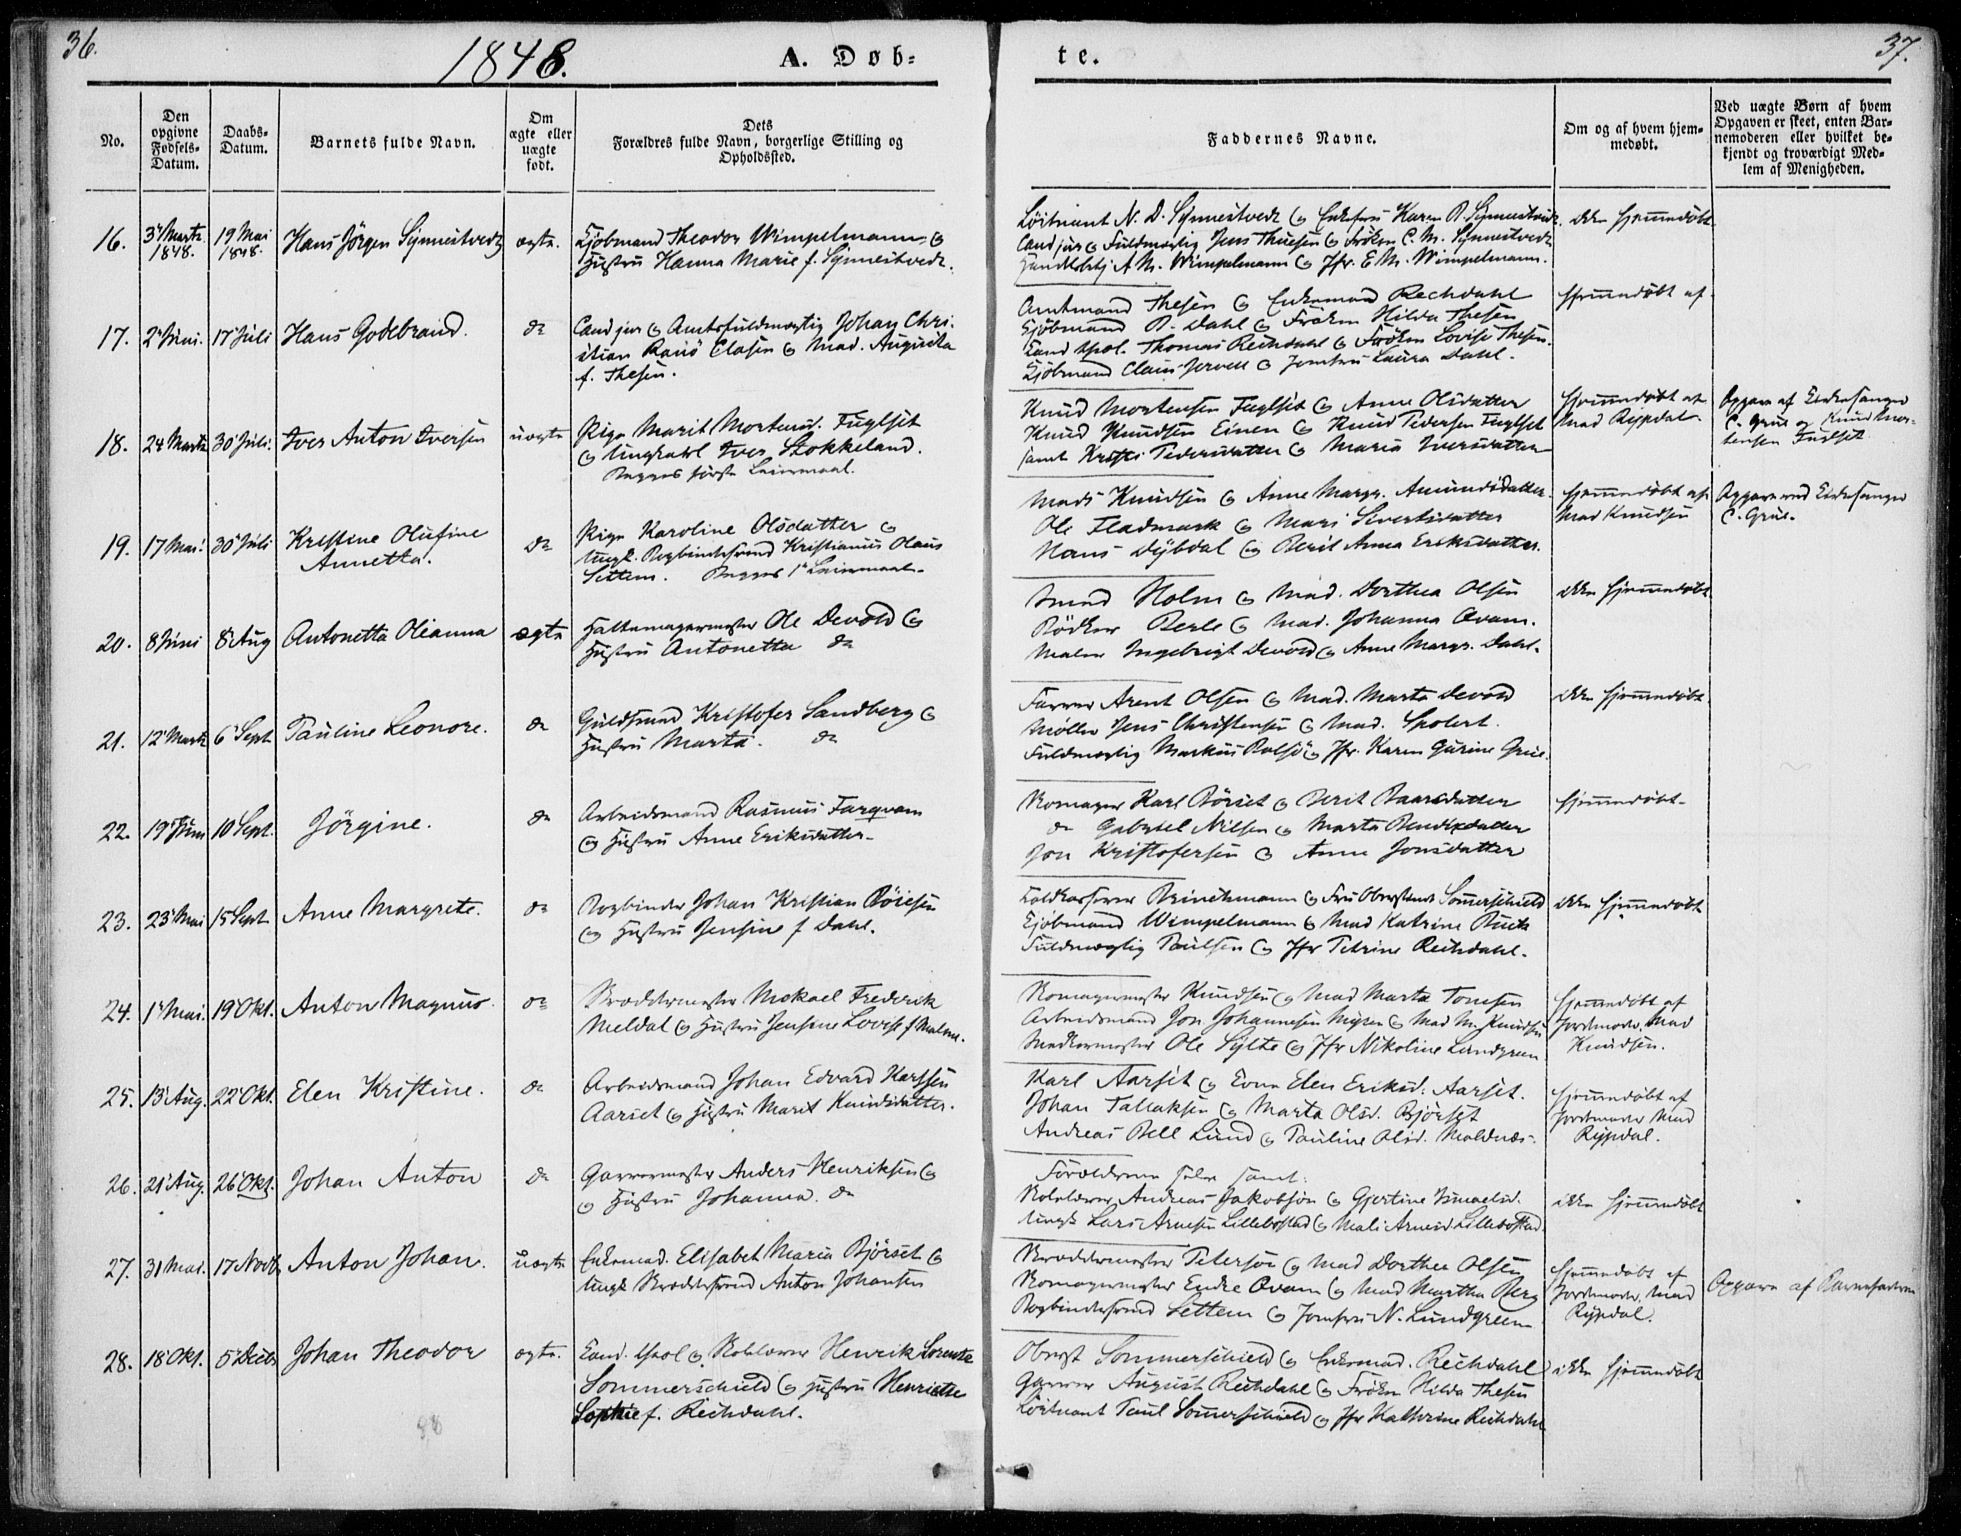 36.
1848.
A. Døb-
te.
37.
No.
Den opgivne Fødsels-Datum.
Daabs-Datum.
Barnets fulde Navn.
Om ægte eller uægte født.
Dets Forældres fulde Navn, borgerlige Stilling og Opholdssted.
Faddernes Navne.
Om og af hvem hjem-medøbt.
Ved uægte Børn af hvem Opgaven er skeet, enten Bar-nemoderen eller hvilket be-kjendt og troværdigt Med-lem af Menigheden.
16. 3 Marts 1848. 19 Mai 1848. Hans Jörgen Synnestvedt ægte.
Kjöbmand Theodor Wimpelmann og
Hustru Hanna Marie f. Synnestvedt.
Löitnant N. D. Synnestvedt og Enkefru Karen B. Synnestvedt
Cand jur og Fuldmægtig Jens Thuesen og Fröken C. M. Synnestvedt
A M. Wimpelmann og Jfr. E M. Wimpelmann.
ikke hjemmedöbt.
17. 2 Juni. 17 Juli Hans Godtbrand. do
Cand jur og Amtsfuldmægtig Johan Chri-
stian Clasen og Mad. Augusta
f. Thesen.
Amtmand Thesen og Enkemad Rechdahl
Kjöbmand B. Dahl og Fröken Hilda Thesen
Cand theol. Thomas Rechdahl og Fröken Lovise Thesen.
Kjöbmand Claus Jervell og Jomfru Laura Dahl.
Hjemmedöbt af
18. 24 Marts 30 Juli. Iver Anton Iversen uægte
Pige Marit Mortensd. Fuglset
og Ungkarl Iver Stokkeland.
Begges förste Leiermaal.
Knud Mortensen Fuglset og Anne Olsdatter
Knud Knudsen Einen og Knud Pedersen Fuglset
samt Pedersdatter og Maria Iversdatter
Hjemmedöbt af
Mad Rypdal
Opgave af Kirkesanger
C. Grüe og Knud Mor-
tensen Fuglset
19. 17 Mai. 30 Juli Kristine Olufine
Annetta. do
Pige Karoline Olsdatter og
Ungk. Bogbindersvend Kristianus Olaus
Settem. Begges 1ste Leiermaal.
Mads Knudsen og Anne Margr. Amundsdatter.
Ole Fladmark og Mari Sivertsdatter
Hans Dybdal og Berit Anna Eriksdatter.
Hjemmedöbt af
Mad Knudsen
Opgave ved Kirkesanger
C. Grüe.
20. 8 Juni 8 Aug Antonetta Olianna ægte
Hattemagermester Ole Devold og
Hustru Antonetta do
Smed Holm og Mad. Dorthea Olsen
Bödker Berle og Mad. Johanna Qvam.
Maler Ingebrigt Devold og Anne Margr. Dahl.
ikke hjemmedöbt
21. 12 Marts 6 Sept Pauline Leonore. do
Guldsmed Kristofer Sandberg og
Hustru Marta. do
Farver Arent Olsen og Mad. Marta Devold
Möller Jens Christensen og Mad. Spolert.
Fuldmægtig Markus Bolsö og Jfr. Karen Gurine Grüe.
ikke hjemmedöbt
22. 19 Juni 10 Sept. Jörgine. do
Arbeidsmand Rasmus Farqvam
og Hustru Anne Eriksdatter.
Skomager Karl Börset og Berit Baarsdatter
do Gabriel Nilsen og Marta Bendixdatter
Jon Kristofersen og Anne Jonsdatter
hjemmedöbt.
23. 23 Mai 15 Sept. Anne Margrete. do
Bogbinder Johan Kristian Böiesen
og Hustru Jensine f Dahl.
Toldkasserer Brinchmann og Fru Oberstinde Sommerschield
Kjöbmand Wimpelmann og Mad Katrine Buck
Fuldmægtig Poulsen og Jfr Petrine Rechdahl.
ikke hjemmedöbt
24. 1 Mai. 19 Okt. Anton Magnus. do
Skreddermester Mikael Frederik
Meldal og Hustru Jensine Lovise f Malme.
Skomagermester Knudsen og Mad Marta Tomsen
Arbeidsmand Jon Johannesen Myren og Mad M. Knudsen
Snedkermester Ole Sylte og Jfr Nikoline Lundgreen
Hjemmedöbt af
Jordmoder Mad
Knudsen.
25. 13 Aug. 22 Okt. Elen Kristine. do
Arbeidsmand Johan Edvard Karlsen
Aarset og Hustru Marit Knudsdatter.
Karl Aarset og Kone Elen Eriksd. Aarset.
Johan Tallaksen og Marta Olsd. Björset
Andreas Bell Lund og Pauline Olsd. Moldnæs.
Hjemmedöbt af
Jordmoder Mad
Rypdal.
26. 21 Aug. 26 Okt. Johan Anton do
Garvermester Anders Henriksen og
og Hustru Johanna. do
Forældrene selv samt:
Skolelærer Andreas Jakobson og Gjertine Ismaelsd.
Ungk Lars Arnesen Lillebostad og Mali Arnesd Lillebostad.
ikke hjemmedöbt
27. 31 Mai. 17 Novb Anton Johan. uægte
Enkemad. Elisabet Maria Björset og
Ungk Skreddersvend Anton Johansen
Skreddermester Peterson og Mad Dorthea Olsen
Skomagermester Endre Qvam og Mad Martha Berg
Bogbindersvend Settem og Jomfru N. Lundgreen
Hjemmedöbt af
Jordmoder Mad
Rypdal.
Opgave af Barnefaderen
28. 18 Okt. 5 Decbr Johan Theodor ægte.
Cand. theol og Skolelærer Henrik Lorentz
Sommerschield og Hustru Henriette
Sophie f. Rechdahl.
Oberst Sommerschield og Enkemad. Rechdahl
Garver August Rechdahl og Fröken Hilda Thesen
Löitnant Paul Sommerschield og Jfr Kathrine Rechdahl
ikke hjemmedöbt